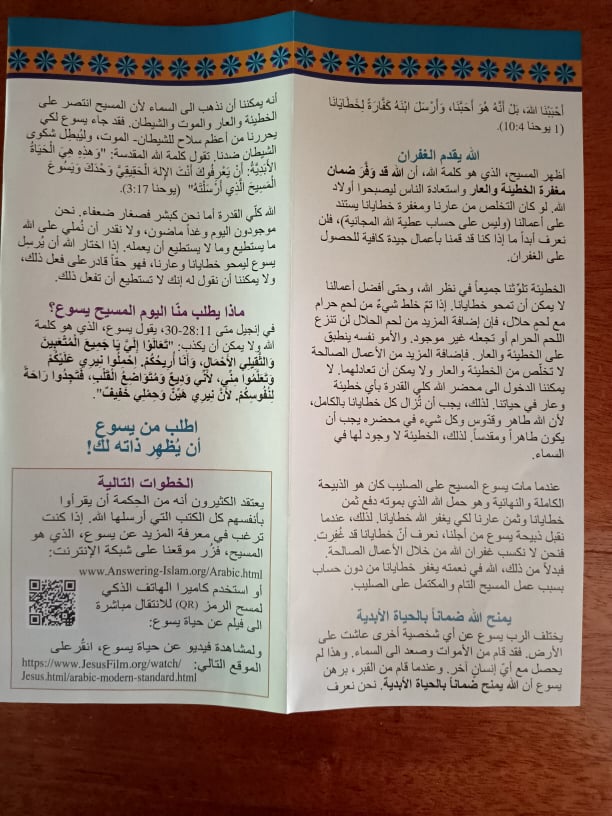 أَحْبَبْنَا اللهَ، بَلْ أَنَّهُ هُوَ أَحَبَّنَا، وَأَرْسَلَ ابْنَهُ كَفَّارَةً لِخَطَايَانَا
(1 يوحنا 10:4).
الله يقدم الغفران
أظهر المسيح، الذي هو كلمة الله، أن الله قد وفّر ضمان
مغفرة الخطيئة والعار واستعادة الناس ليصبحوا أولاد
الله. لو كان التخلص من عارنا ومغفرة خطايانا يستند
على أعمالنا (وليس على حساب عطية الله المجانية)، فلن
نعرف أبداً ما إذا كنا قد قمنا بأعمال جيدة كافية للحصول
على الغفران.
الخطيئة تلوّثنا جميعاً في نظر الله، وحتى أفضل أعمالنا
لا يمكن أن تمحو خطايانا. إذا تمّ خلط شيءٌ من لحمٍ حرام
مع لحمٍ حلال، فإن إضافة المزيد من لحم الحلال لن تنزع
اللحم الحرام أو تجعله غير موجود. والأمر نفسه ينطبق
على الخطيئة والعار. فإضافة المزيد من الأعمال الصالحة
لا تخلّص من الخطيئة والعار ولا يمكن أن تعادلهما. لا
يمكننا الدخول الى محضر الله كلي القدرة بأي خطيئة
وعار في حياتنا. لذلك، يجب أن تُزال كل خطايانا بالكامل،
لأن الله طاهر وقدّوس وكل شيء في محضره يجب أن
يكون طاهراً ومقدساً. لذلك، الخطيئة لا وجود لها في
السماء.
عندما مات يسوع المسيح على الصليب كان هو الذبيحة
الكاملة والنهائية وهو حمل الله الذي بموته دفع ثمن
خطايانا وثمن عارنا لكي يغفر الله خطايانا. لذلك، عندما
نقبل ذبيحة يسوع من أجلنا، نعرف أنّ خطايانا قد غُفِرت.
فنحن لا نكسب غفران الله من خلال الأعمال الصالحة.
فبدلاً من ذلك، الله في نعمته يغفر خطايانا من دون حساب
بسبب عمل المسيح التام والمكتمل على الصليب.
يمنح الله ضماناً بالحياة الأبدية
يختلف الرب يسوع عن أي شخصية أخرى عاشت على
الأرض. فقد قام من الأموات وصعد الى السماء. وهذا لم
يحصل مع أيّ إنسان آخر. وعندما قام من القبر، برهن
يسوع أن الله يمنح ضماناً بالحياة الأبدية. نحن نعرف
أنه يمكننا أن نذهب الى السماء لأن المسيح انتصر على
الخطيئة والعار والموت والشيطان. فقد جاء يسوع لكي
يحررنا من أعظم سلاح للشيطان- الموت، وليُبطِل شكوى
الشيطان ضدنا. تقول كلمة الله المقدسة: "وَهذِهِ هِيَ الْحَيَاةُ
الأَبَدِيَّةُ: أَنْ يَعْرِفُوكَ أَنْتَ الإِلهَ الْحَقِيقِيَّ وَحْدَكَ وَيَسُوعَ
الْمَسِيحَ الَّذِي أَرْسَلْتَهُ" (يوحنا 3:17).
الله كلّي القدرة أما نحن كبشر فصغار ضعفاء. نحن
موجودون اليوم وغداً ماضون، ولا نقدر أن نُملي على الله
ما يستطيع وما لا يستطيع أن يعمله. إذا اختار الله أن يُرسِل
يسوع ليمحو خطايانا وعارنا، فهو حقاً قادر على فعل ذلك،
ولا يمكننا أن نقول له إنك لا تستطيع أن تفعل ذلك.
ماذا يطلب منّا اليوم المسيح يسوع؟
في إنجيل متى 11:28-30، يقول يسوع، الذي هو كلمة
الله ولا يمكن أن يكذب: "تَعَالَوْا إِلَيَّ يَا جَمِيعَ الْمُتْعَبِينَ
وَالثَّقِيلِي الأَحْمَالِ، وَأَنَا أُرِيحُكُمْ. اِحْمِلُوا نِيرِي عَلَيْكُمْ
وَتَعَلَّمُوا مِنِّي، لأَنِّي وَدِيعٌ وَمُتَوَاضِعُ الْقَلْبِ، فَتَجِدُوا رَاحَةً
لِنُفُوسِكُمْ. لأَنَّ نِيرِي هَيِّنٌ وَحِمْلِي خَفِيفٌ".
اطلب من يسوع
أن يُظهِر ذاته لك!
الخطوات التالية
يعتقد الكثيرون أنه من الحِكمة أن يقرأوا
بأنفسهم كل الكتب التي أرسلها الله. إذا كنت
ترغب في معرفة المزيد عن يسوع، الذي هو
المسيح، فزُر موقعنا على شبكة الإنترنت:
www.Answering-Islam.org/Arabic.html
أو استخدم كاميرا الهاتف الذكي
لمسح الرمز (QR) للانتقال مباشرة
الى فيلم عن حياة يسوع:
ولمشاهدة فيديو عن حياة يسوع، انقُر على
الموقع التالي: https://www.JesusFilm.org/watch/
Jesus.html/arabic-modern-standard.html